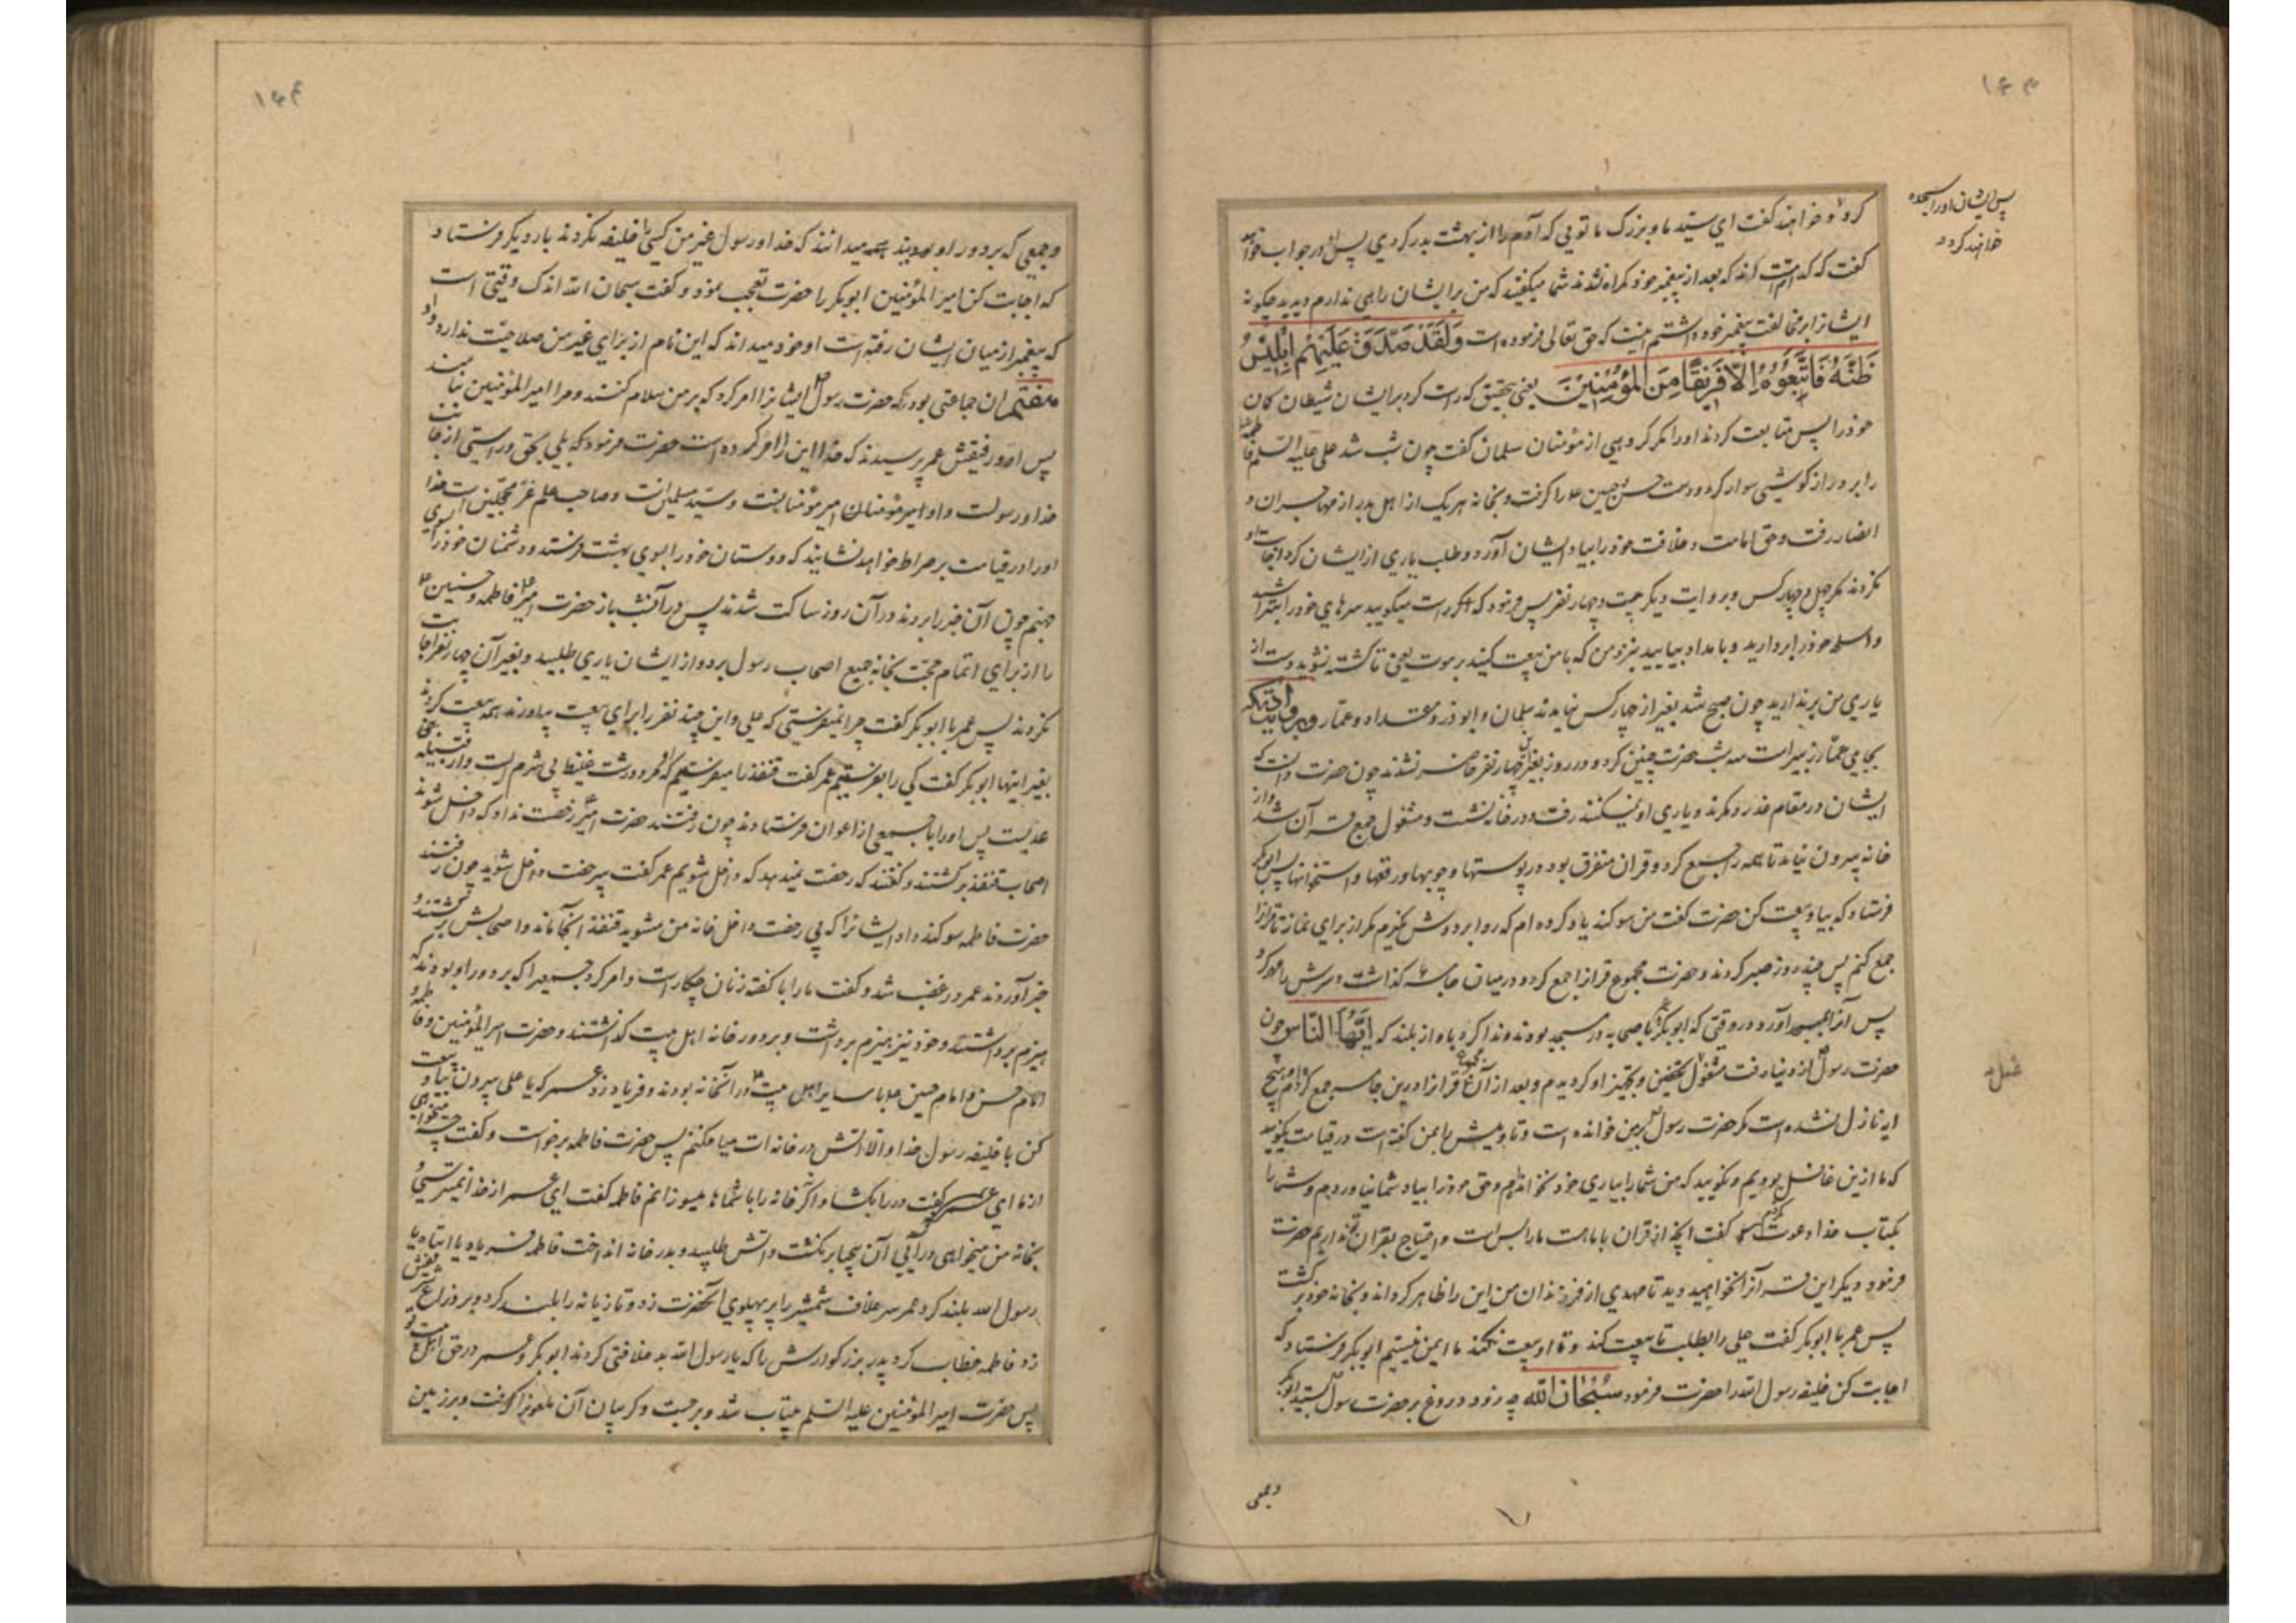 ۱۶۳
پس ایشان او را سجده
خواهند کرد و
کرد و خواهند گفت ای سید ما و بزرگ ما تویی که آدم را از بهشت بدر کردی پس او در جواب خواهد
گفت که کدام امت اند که بعد از پیغمبر خود گمراه نشدند شما میگفتید که من بر ایشان راهی ندارم دیدید چگونه
ایشانرا بر مخالفت پیغمبر خود داشتم اینست که حق تعالی فرموده است وَلَقَدْ صَدَّقَ عَلَيْهِمْ إِبْلِيسُ
ظَنَّهُ فَاتَّبَعُوهُ إِلَّا فَرِيقًا مِنَ الْمُؤْمِنِينَ یعنی بتحقیق که راست کرد بر ایشان شیطان کمان
خود را پس متابعت کردند او را مکر کروهی از مؤمنان سلمان گفت چون شب شد علی علیه السلم فاطمه
را بر درازکوشی سوار کرد و دست حسن و حسین را گرفت و بخانه هر یک از اهل بدر از مهاجران و
انصار رفت و حق امامت و خلافت خود را بیاد ایشان آورد و طلب یاری از ایشان کرد اجابت او
نکردند مکر چهل و چهار کس و بروایت دیگر بیست و چهار نفر پس فرمود که اگر راست میگویید سرهای خود را بتراشید
و اسلحه خود را بردارید و بامداد بیایید بنزد من که با من بیعت کنید بر موت یعنی تا کشته نشوید دست از
یاری من برندارید چون صبح شد بغیر از چهار کس نیامدند سلمان و ابوذر و مقداد و عمار و بروایت دیگر
بجای عمار زبیر است سه شب حضرت چنین کرد و در روز بغیر این چهار نفر حاضر نشدند چون حضرت دانست که
ایشان در مقام غدر و مکرند و یاری او نمیکنند رفت و در خانه نشست و مشغول جمع قرآن شد و از
خانه بیرون نیامد تا همه را جمع کرد و قران متفرق بود در پوستها و چوبها و رقعها و استخوانها پس ابوبکر
فرستاد که بیا و بیعت کن حضرت گفت من سوکند یاد کرده ام که ردا بر دوش نگیرم مکر از برای نماز تا قرانرا
جمع کنم پس چند روز صبر کردند و حضرت مجموع قرانرا جمع کرد و در میان جامه گذاشت و سرش را مهر کرد
پس آنرا بمسجد آورد در وقتی که ابوبکر با صحابه در مسجد بودند و ندا کرد باواز بلند که ایها الناس چون
حضرت رسول از دنیا رفت مشغول تکفین و تجهیز او کردیدم و بعد از آن مجموع قرانرا درین جامه جمع کردم و هیچ
غسل
ایه نازل نشده است مکر حضرت رسول بر من خوانده است و تاویلش را بمن گفته است در قیامت نگویید
که ما ازین غافل بودیم و نگویید که من شما را بیاری خود نخواندم و حق خود را بیاد شما نیاوردم و شما را
بکتاب خدا دعوت نکردم عمر گفت انچه از قران با ما هست ما را بس است و احتیاج بقران تو نداریم حضرت
فرمود دیگر این قرآنرا نخواهید دید تا مهدی از فرزندان من این را ظاهر گرداند و بخانه خود برگشت
پس عمر با ابوبکر گفت علی را بطلب تا بیعت کند و تا او بیعت نکند ما ایمن نیستیم ابوبکر فرستاد که
اجابت کن خلیفه رسول الله را حضرت فرمود سُبْحَانَ الله چه زود دروغ بر حضرت رسول بستید ابوبکر
و جمعی
۱۶۴
و جمعی که بر دور او بودند همه میدانند که خدا و رسول غیر من کسی را خلیفه نکردند بار دیگر فرستاد
که اجابت کن امیر المؤمنین ابوبکر را حضرت تعجب نمود و گفت سبحان الله اندک وقتی است
که پیغمبر از میان ایشان رفته است او خود میداند که این نام از برای غیر من صلاحیت ندارد و او
هفتم ان جماعتی بود که حضرت رسول ایشانرا امر کرد که بر من سلام کنند و مرا امیر المؤمنین نامند
پس او و رفیقش عمر پرسیدند که خدا این را امر کرده است حضرت فرمود که بلی بحق و راستی از جانب
خدا و رسولست و او امیر مؤمنان و سید مسلمانست و صاحب علم غر محجلین است خدا
او را در قیامت بر صراط خواهد نشانید که دوستان خود را بسوی بهشت فرستد و دشمنان خود را بسوی
جهنم چون آن خبر را بردند در آن روز ساکت شدند پس در آنشب باز حضرت امیر فاطمه و حسنین
را از برای اتمام حجت بخانه جمیع اصحاب رسول برد و از ایشان یاری طلبید و بغیر آن چهار نفر اجابت
نکردند پس عمر با ابوبکر گفت چرا نمیفرستی که علی و این چند نفر را برای بیعت بیاورند همه بیعت کردند
بغیر اینها ابوبکر گفت کی را بفرستیم عمر گفت قنفذ را میفرستیم که او مرد درشت غلیظ بی شرم است و از قبیله بنی
عدیست پس او را با جمعی از اعوان فرستادند چون رفتند حضرت امیر رخصت نداد که داخل شوند
اصحاب قنفذ برگشتند و گفتند که رخصت نمیدهد که داخل شویم عمر گفت بیرخصت داخل شوید چون رفتند
حضرت فاطمه سوکند داد ایشانرا که بی رخصت داخل خانه من مشوید قنفذ انجا ماند و اصحابش برگشتند و
خبر آوردند عمر در غضب شد و گفت ما را با گفته زنان چکار است و امر کرد جمعیرا که بر دور او بودند که
هیزم برداشتند و خود نیز هیزم برداشت و بر دور خانه اهل بیت گذاشتند و حضرت امیر المؤمنین و فاطمه و
امام حسن و امام حسین با سایر اهل بیت در آنخانه بودند و فریاد زد عمر که یا علی بیرون بیا و بیعت
کن با خلیفه رسول خدا و الا اتش در خانه ات میافکنم پس حضرت فاطمه برخواست و گفت چه میخواهی
از ما ای عمر گفت در را بکشا و اگر نه خانه را با شما میسوزانم فاطمه گفت ای عمر از خدا نمیترسی و
بخانه من میخواهی درآیی آن بیحیا برنگشت و اتش طلبید و بدر خانه انداخت فاطمه فریاد یا ابتاه یا
رسول الله بلند کرد عمر سر غلاف شمشیر را بر پهلوی آنحضرت زد و تازیانه را بلند کرد و بر ذراع شریفش
زد فاطمه خطاب کرد پدر بزرگوارش را که یا رسول الله بد خلافتی کردند ابوبکر و عمر در حق اهل بیت تو
پس حضرت امیر المؤمنین علیه السلم بیتاب شد و برجست و کریبان آن ملعونرا گرفت و بر زمین